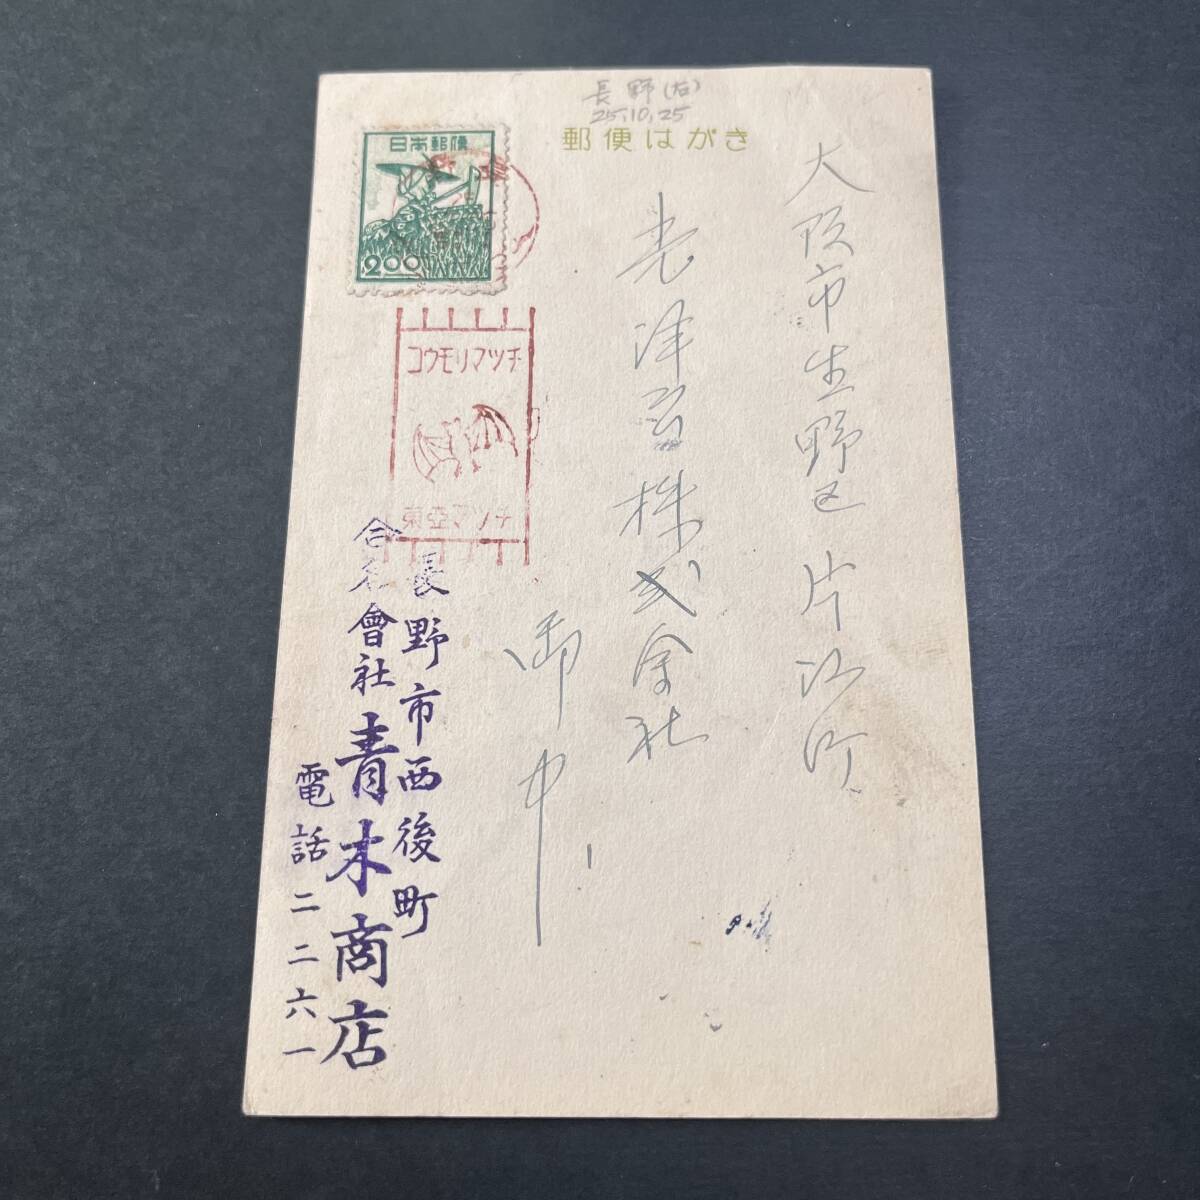 長野(右)
25.10.25
郵便はがき
日本郵便
2.00
コウモリマッチ
東亞マッチ
大阪市生野区片江町
光洋
株式会社
御中
長野市西後町
合名會社青木商店
電話二二六一